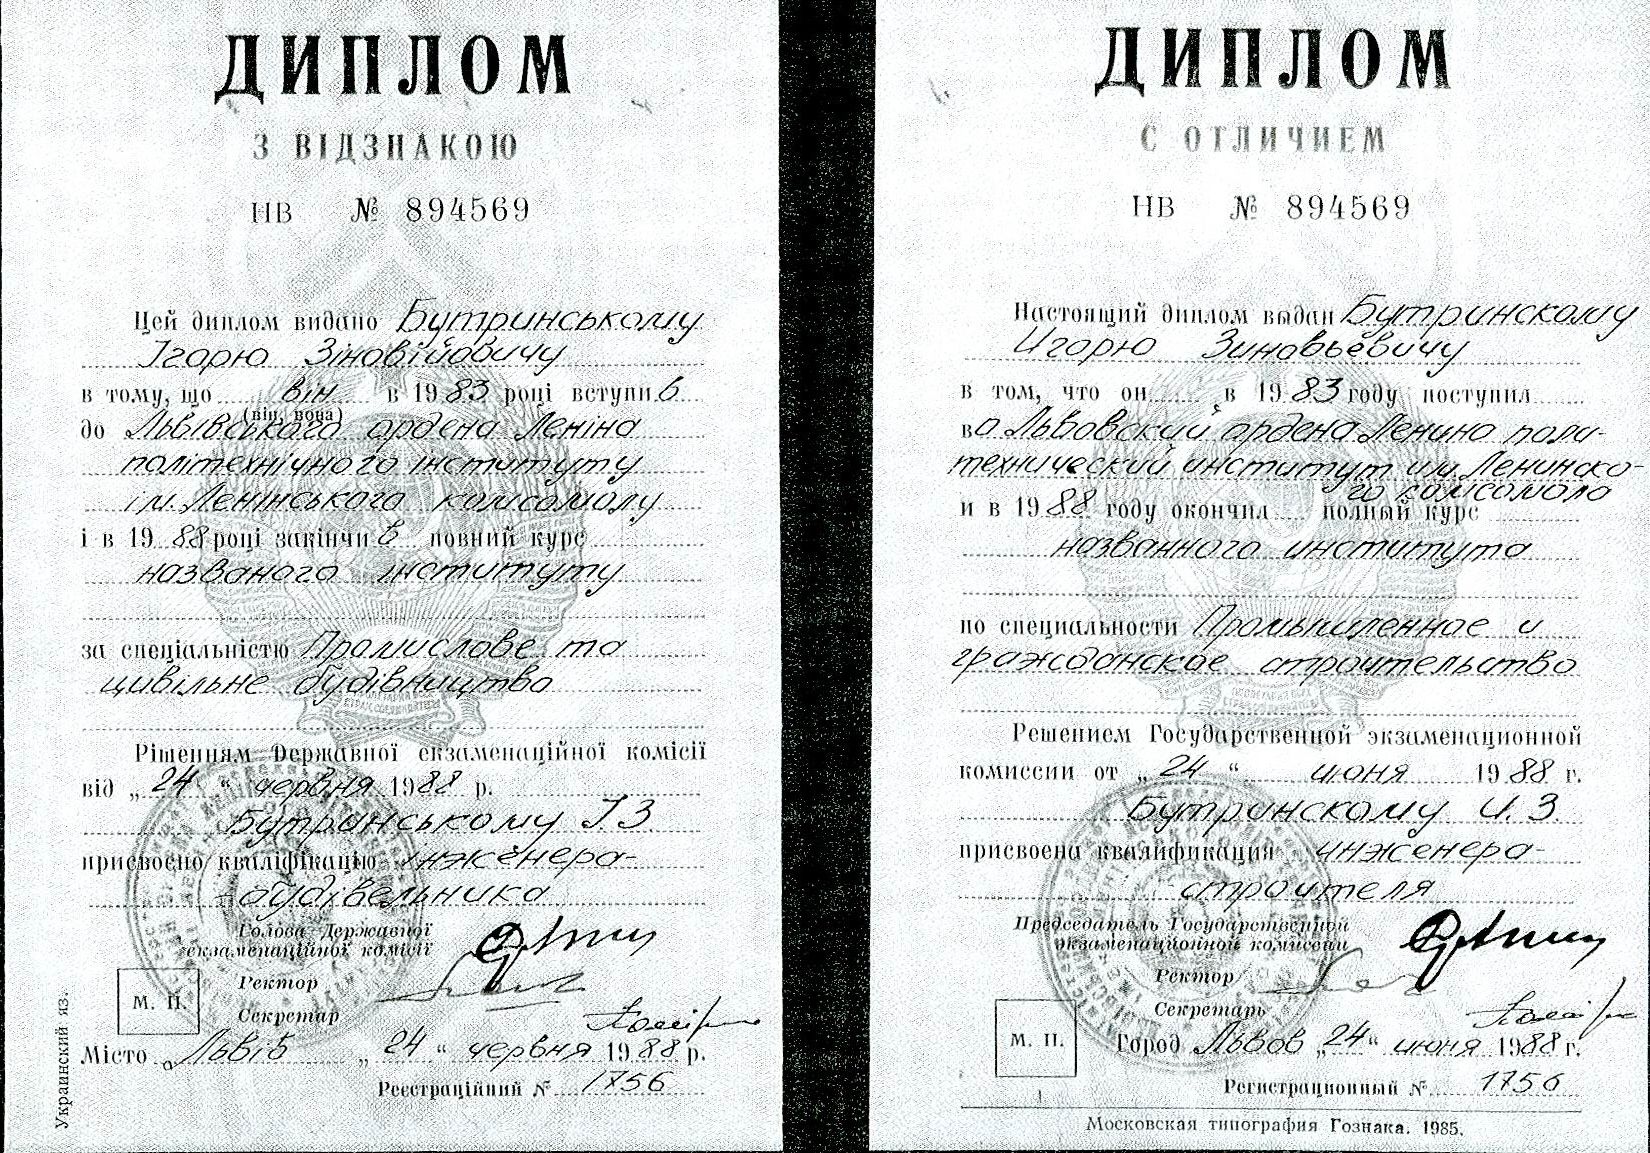 ДИПЛОМ
З ВІДЗНАКОЮ
НВ № 894569
Цей диплом видано Бутринському
Ігорю Зіновійовичу
в тому, що він в 1983 році вступив
(він, вона)
до Львівського ордена Леніна
політехнічного інституту
ім. Ленінського комсомолу
і в 1988 році закінчив повний курс
названого інституту
за спеціальністю Промислове та
цивільне будівництво
Рішенням Державної екзаменаційної комісії
від „24“ червня 1988 р.
Бутринському І.З.
присвоєно кваліфікацію інженера-
будівельника
Голова Державної
екзаменаційної комісії
Ректор
Секретар
М. П.
Місто Львів „24“ червня 1988 р.
Реєстраційний № 1756
Украинский яз.
ДИПЛОМ
С ОТЛИЧИЕМ
НВ № 894569
Настоящий диплом выдан Бутринскому
Игорю Зиновьевичу
в том, что он в 1983 году поступил
во Львовский ордена Ленина поли-
технический институт им. Ленинско-
го комсомола
и в 1988 году окончил полный курс
названного института
по специальности Промышленное и
гражданское строительство
Решением Государственной экзаменационной
комиссии от „24“ июня 1988 г.
Бутринскому И.З.
присвоена квалификация инженера-
строителя
Председатель Государственной
экзаменационной комиссии
Ректор
Секретарь
М. П.
Город Львов „24“ июня 1988 г.
Регистрационный № 1756
Московская типография Гознака. 1985.